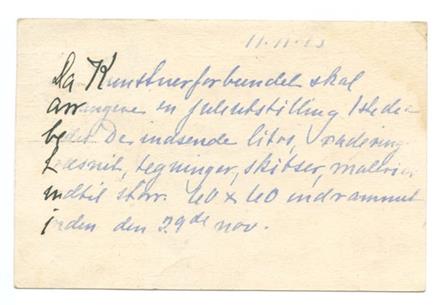 11-11-13
Da Kunstnerforbundet skal
arrangere en juleutstilling
bedes De indsende litos, radering
træsnit, tegninger, skitser, malerier
indtil størr. 40 x 40 indrammet
inden den 29de nov.